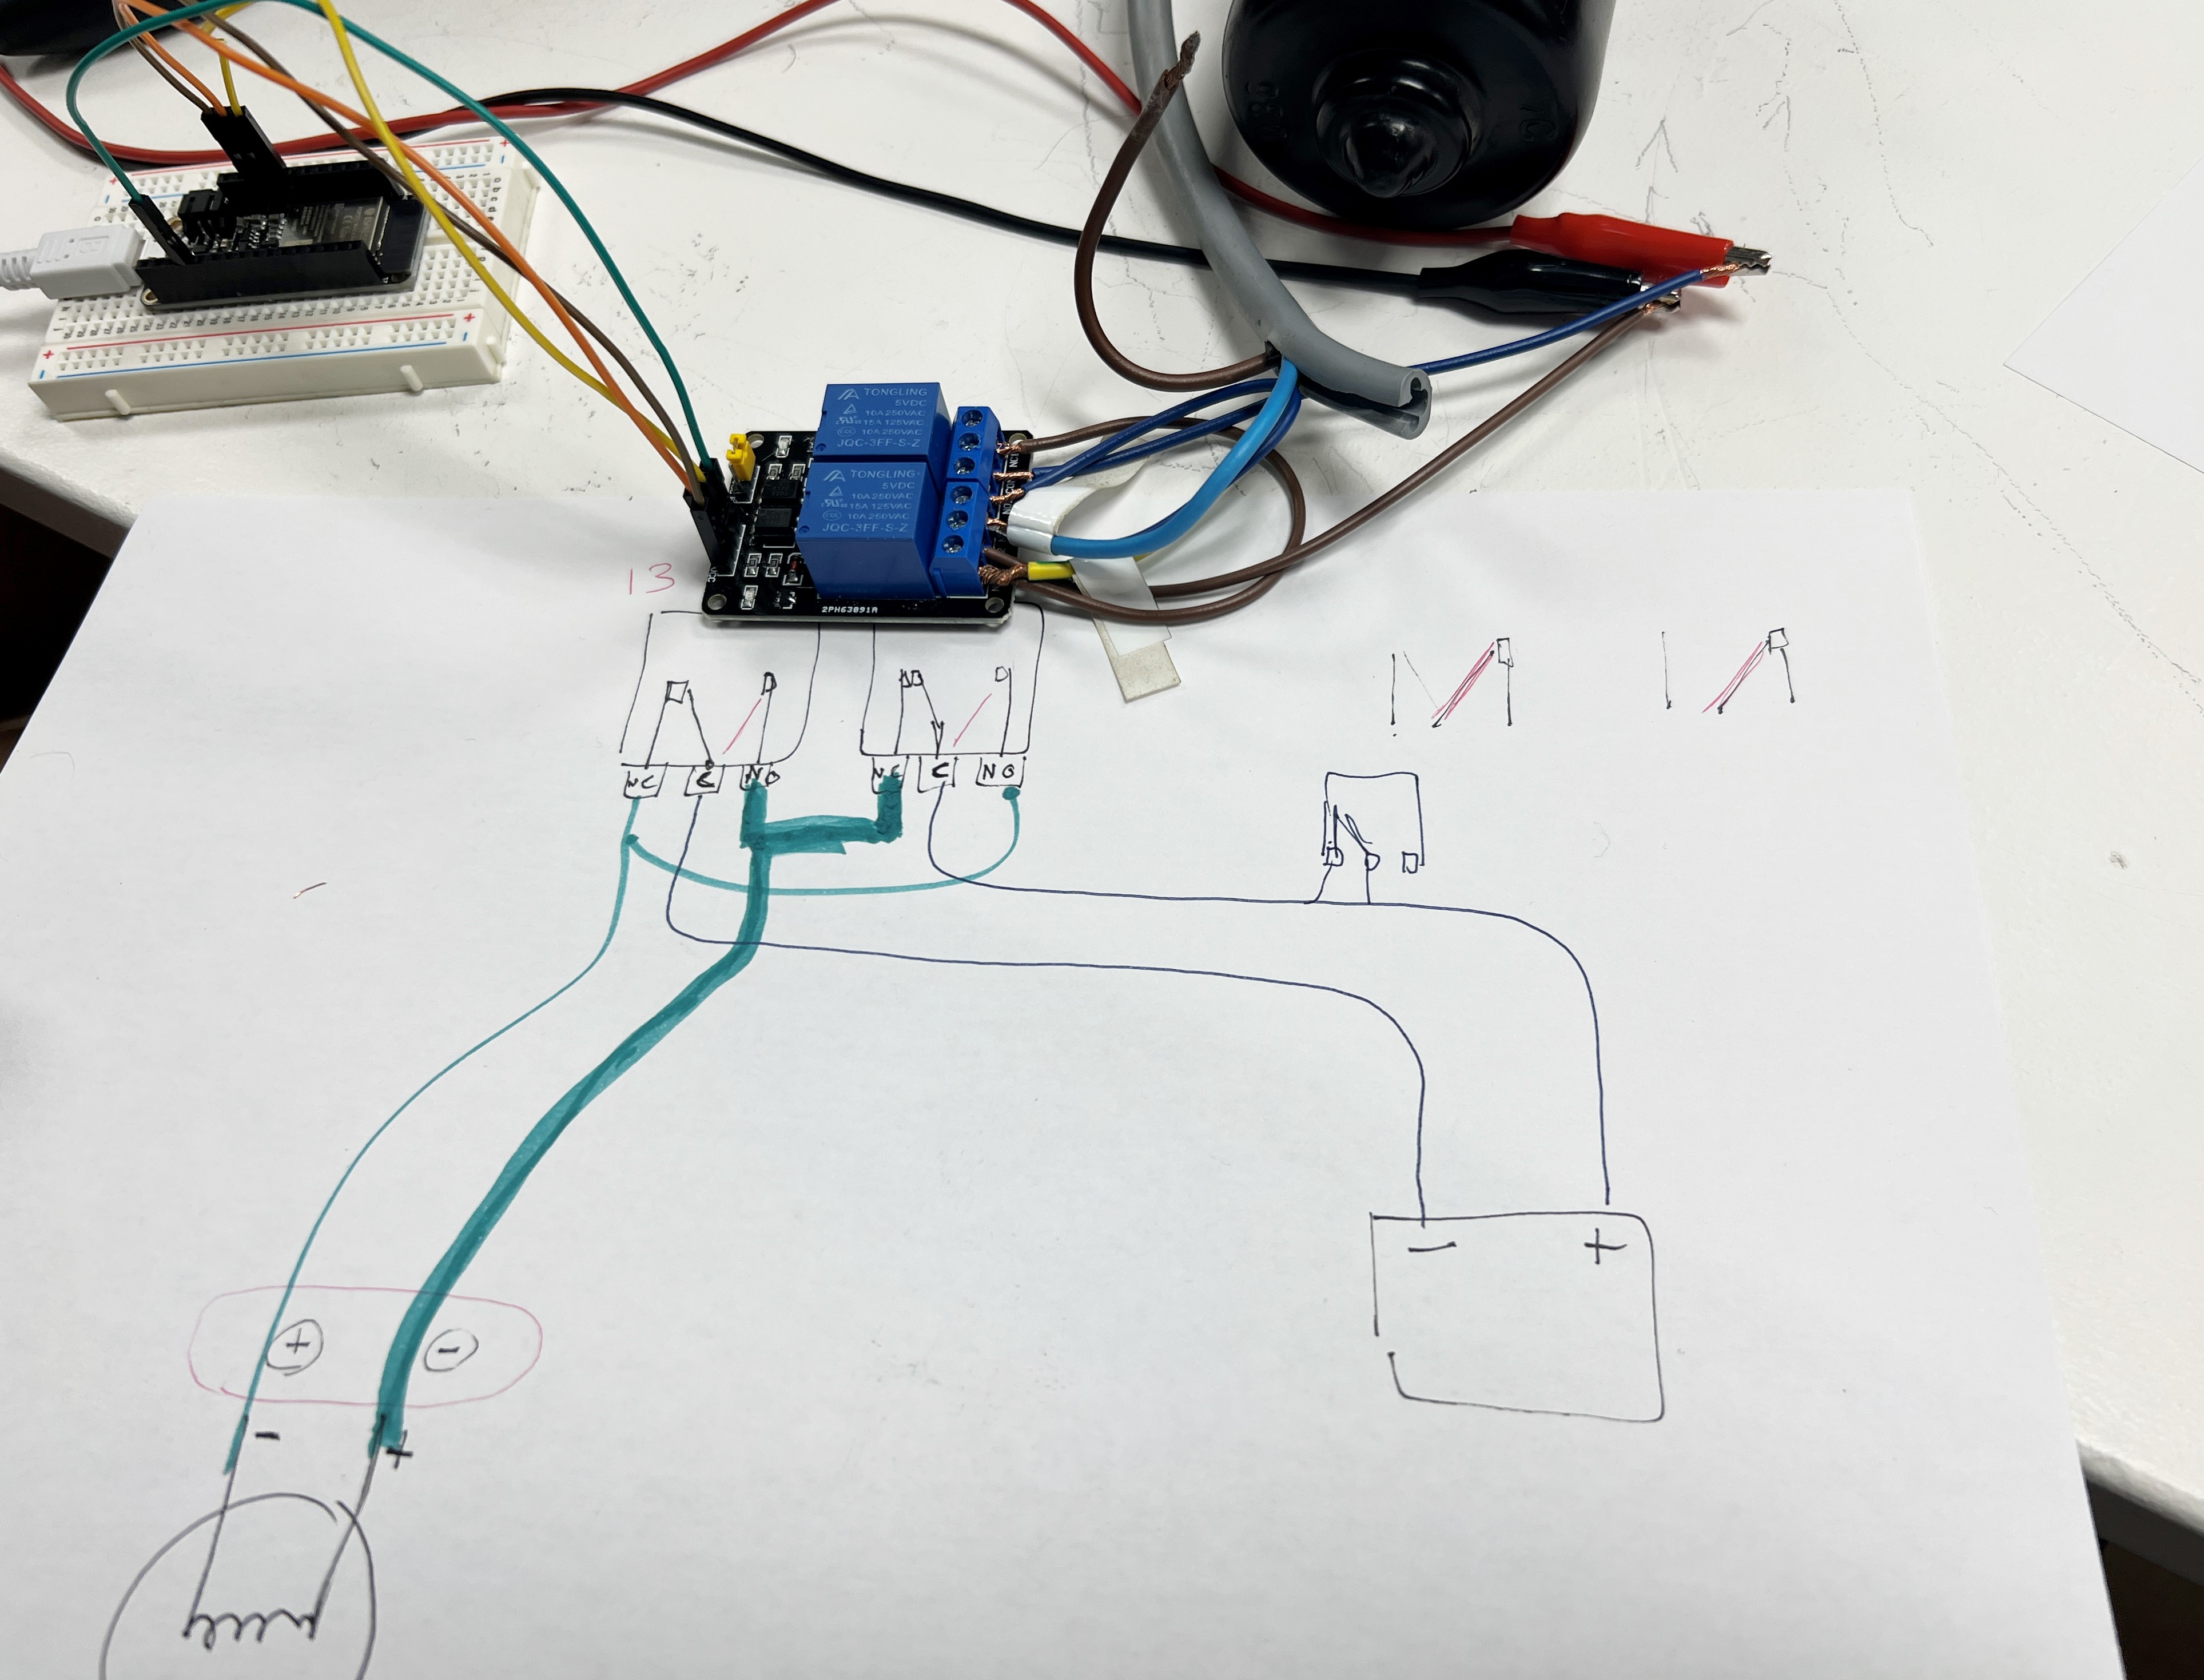 TONGLING
5VDC
10A 250VAC
15A 125VAC
10A 250VAC
JQC-3FF-S-Z
TONGLING
5VDC
10A 250VAC
15A 125VAC
10A 250VAC
JQC-3FF-S-Z
NC1
2PH63091A
13
NC C NO NC C NO
- +
+ -
- +